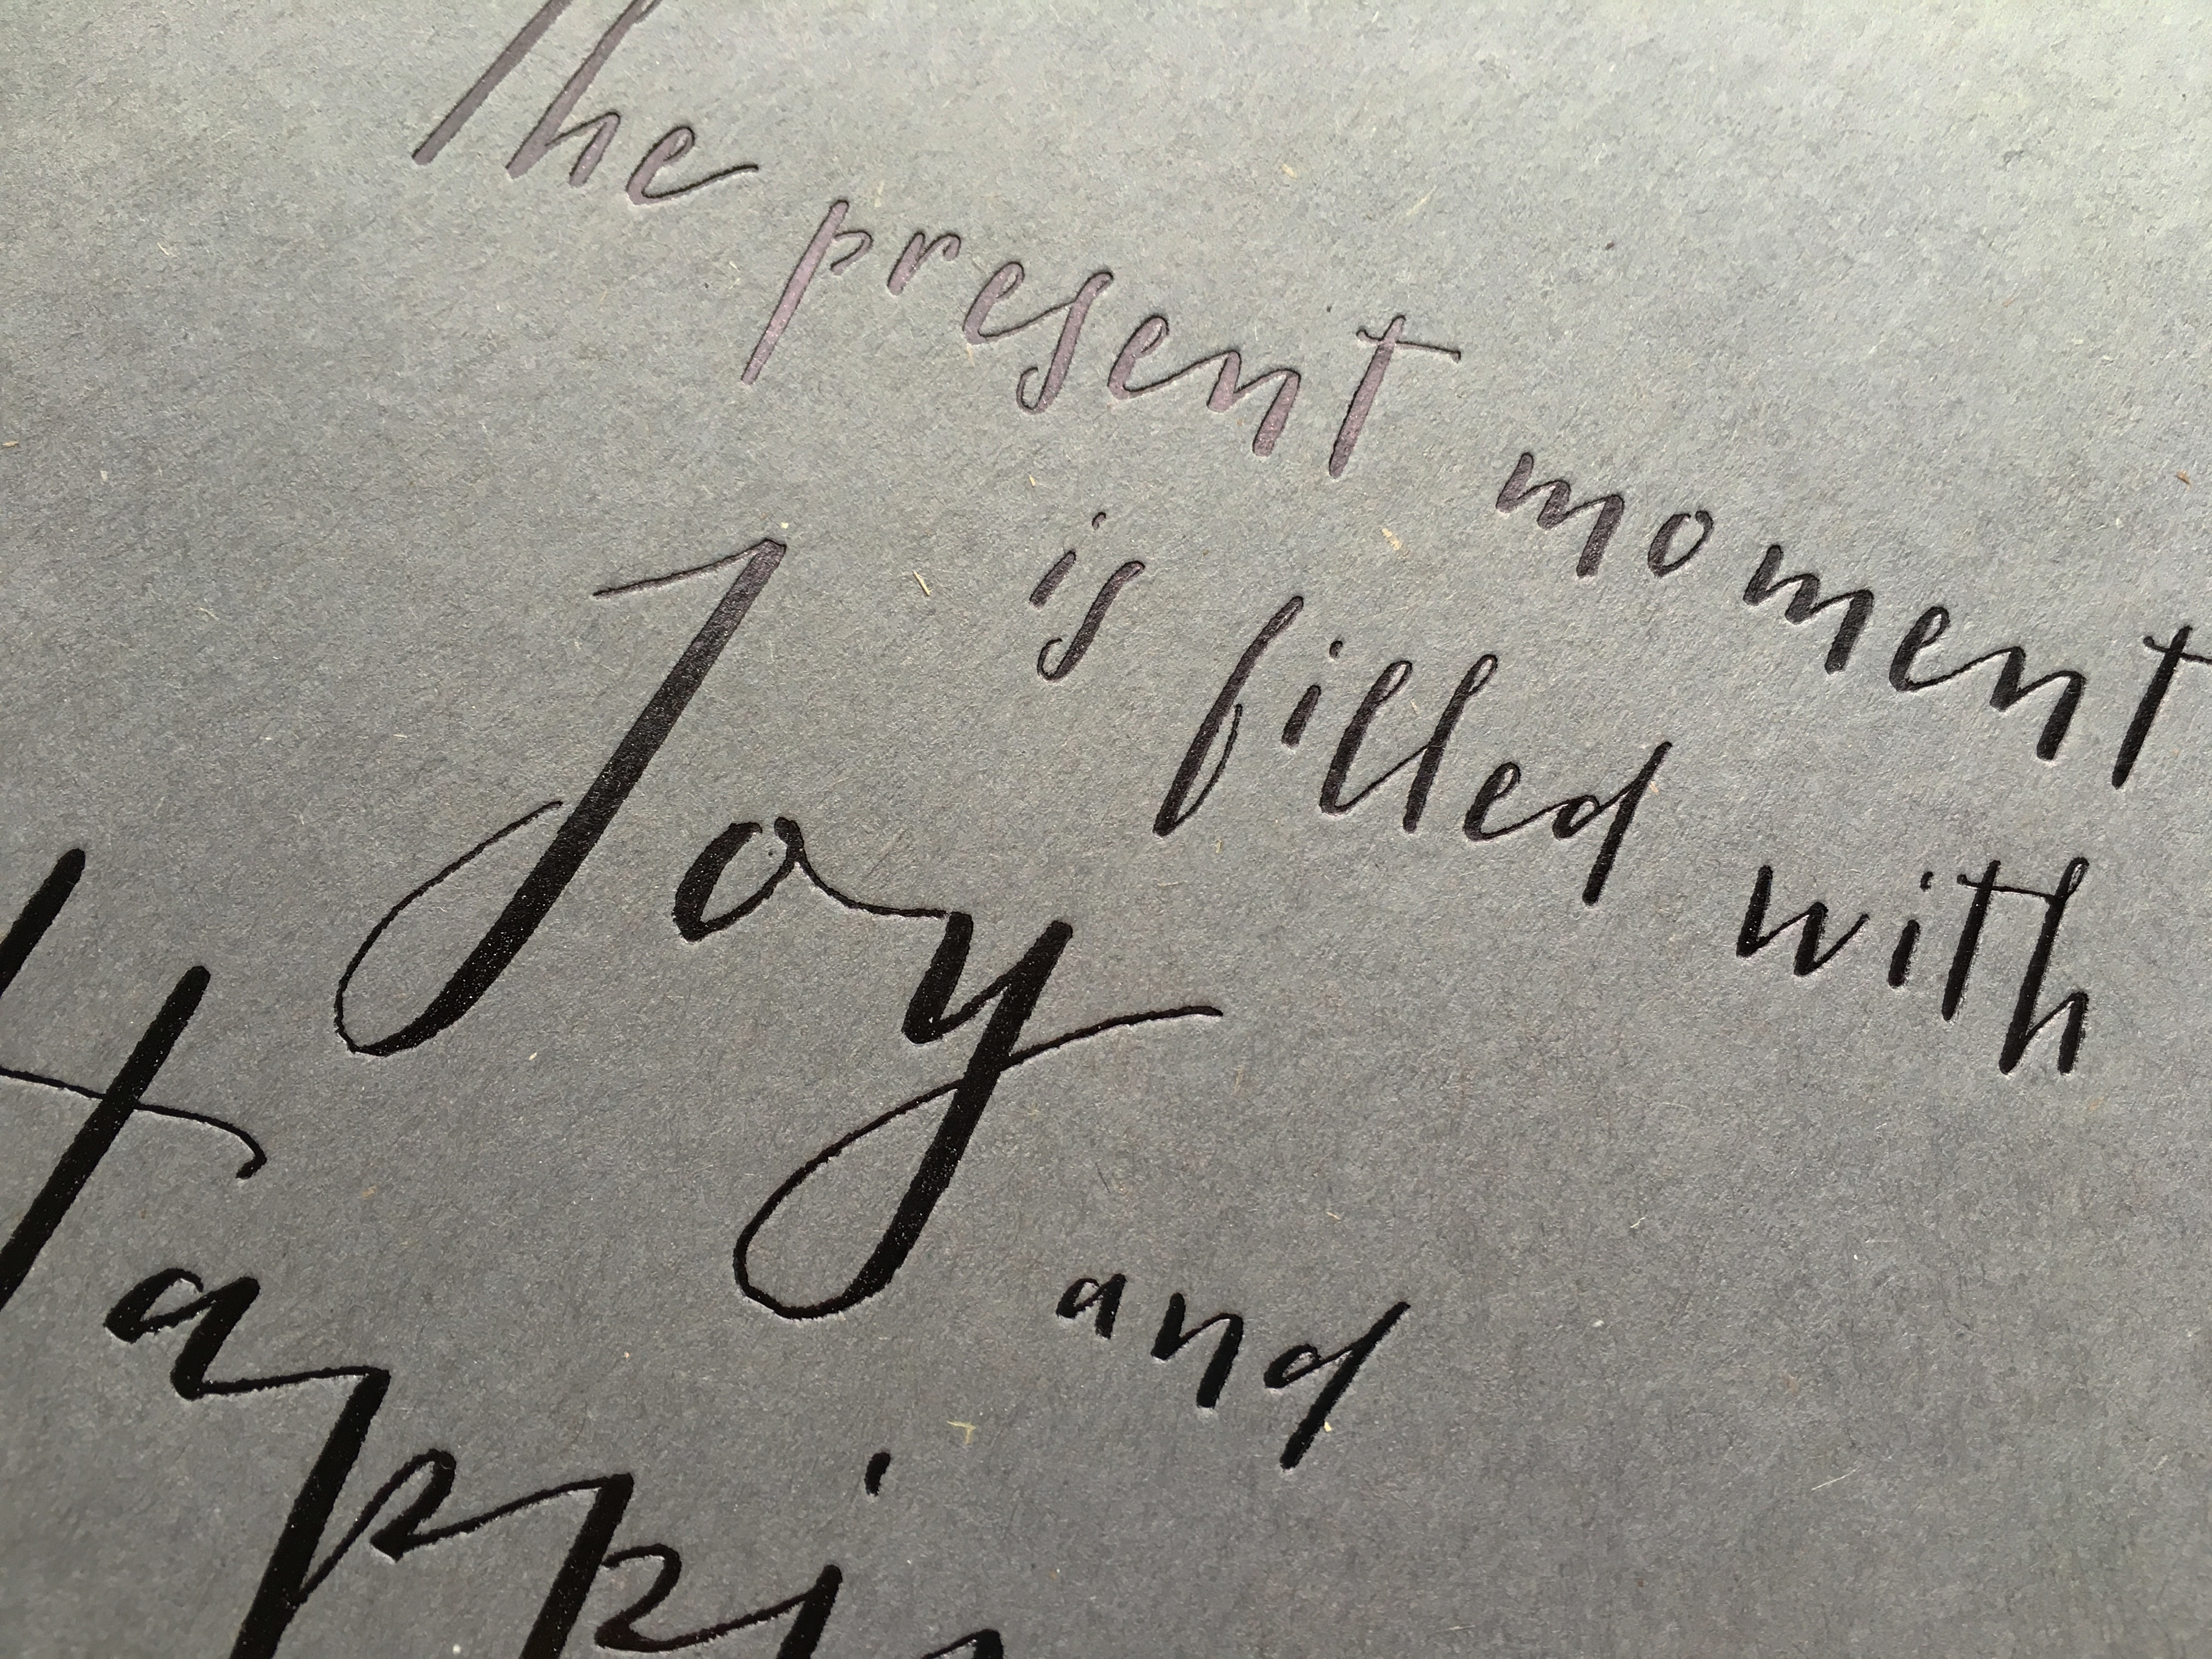 The present moment
is filled with
Joy
and
Happin